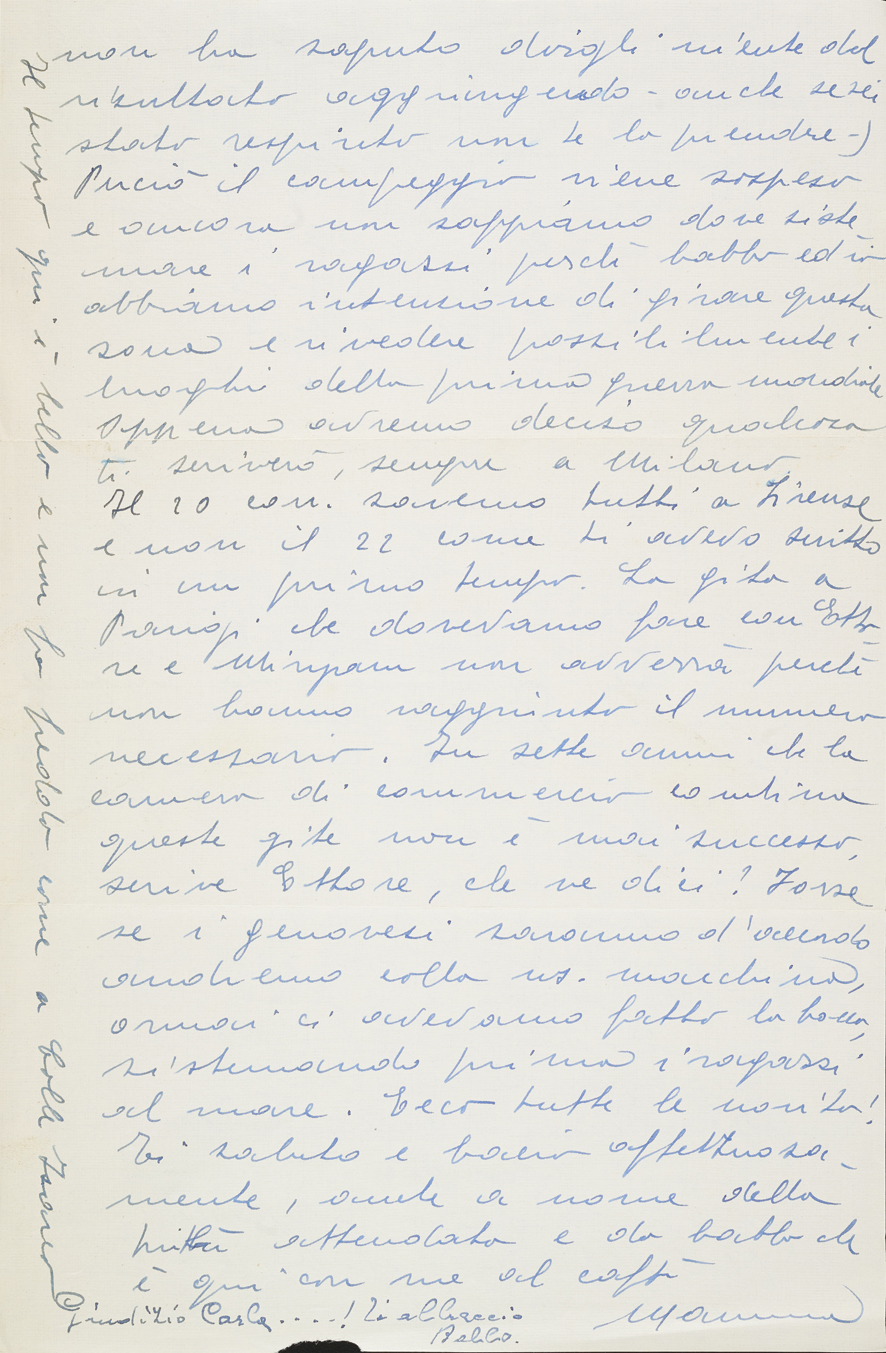 non ha saputo dirgli niente del
risultato aggiungendo - anche se sei
stato respinto non te la prendere -)
Perciò il campeggio viene sospeso
e ancora non sappiamo dove siste
mare i ragazzi perchè babbo ed io
abbiamo intenzione di girare questa
zona e rivedere possibilmente i
luoghi della prima guerra mondiale
Appena avremo deciso qualcosa
ti scriverò, sempre a Milano.
Il 20 corr. saremo tutti a Firenze
e non il 22 come ti avevo scritto
in un primo tempo. La gita a
Parigi che dovevamo fare con Etto-
re e Miryam non avverrà perchè
non hanno raggiunto il numero
necessario. In sette anni che la
camera di commercio combina
queste gite non è mai successo,
scrive Ettore, che ne dici? Forse
se i genovesi saranno d'accordo
andremo colla ns. macchina,
ormai ci avevamo fatto la bocca,
sistemando prima i ragazzi
al mare. Ecco tutte le novità!
Ti saluto e bacio affettuosa-
mente, anche a nome della
attendata e da babbo che
è qui con me al caffè
Mamma
Giudizio Carla....! Ti abbraccio
Babbo.
Il tempo qui è bello e non fa freddo come a Colle Isarco